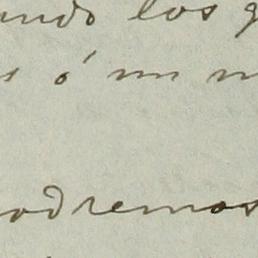 ando los
s ó un
odremos